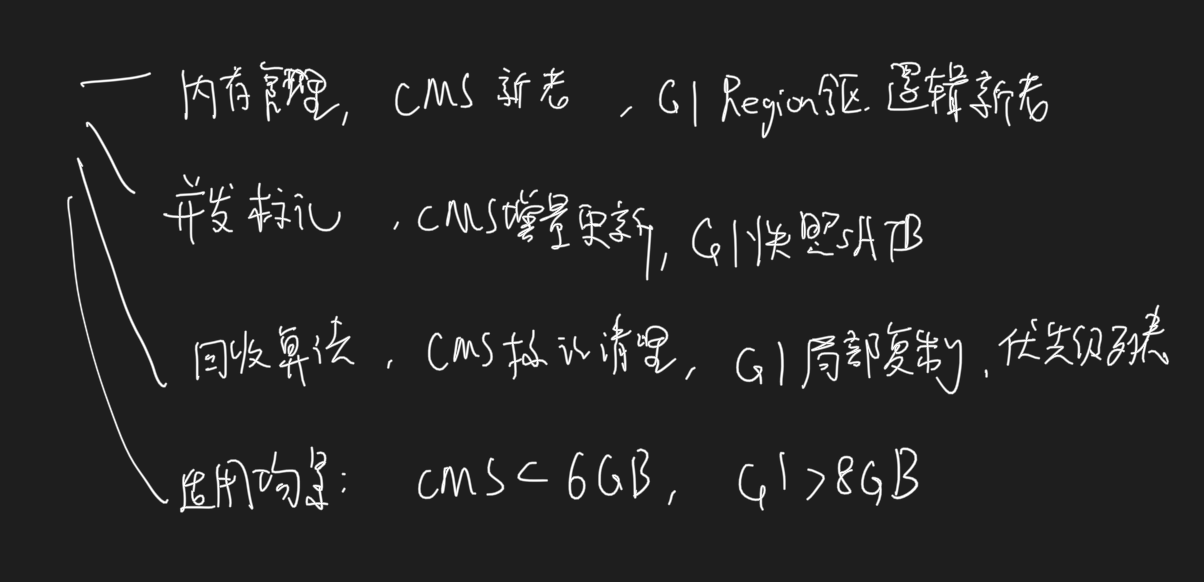 内存管理, CMS 新老, G1 Region分区. 逻辑新老
并发标记, CMS增量更新, G1快照SATB
回收算法, CMS标记清理, G1局部复制, 优先级列表
适用场景: CMS < 6GB, G1 > 8GB